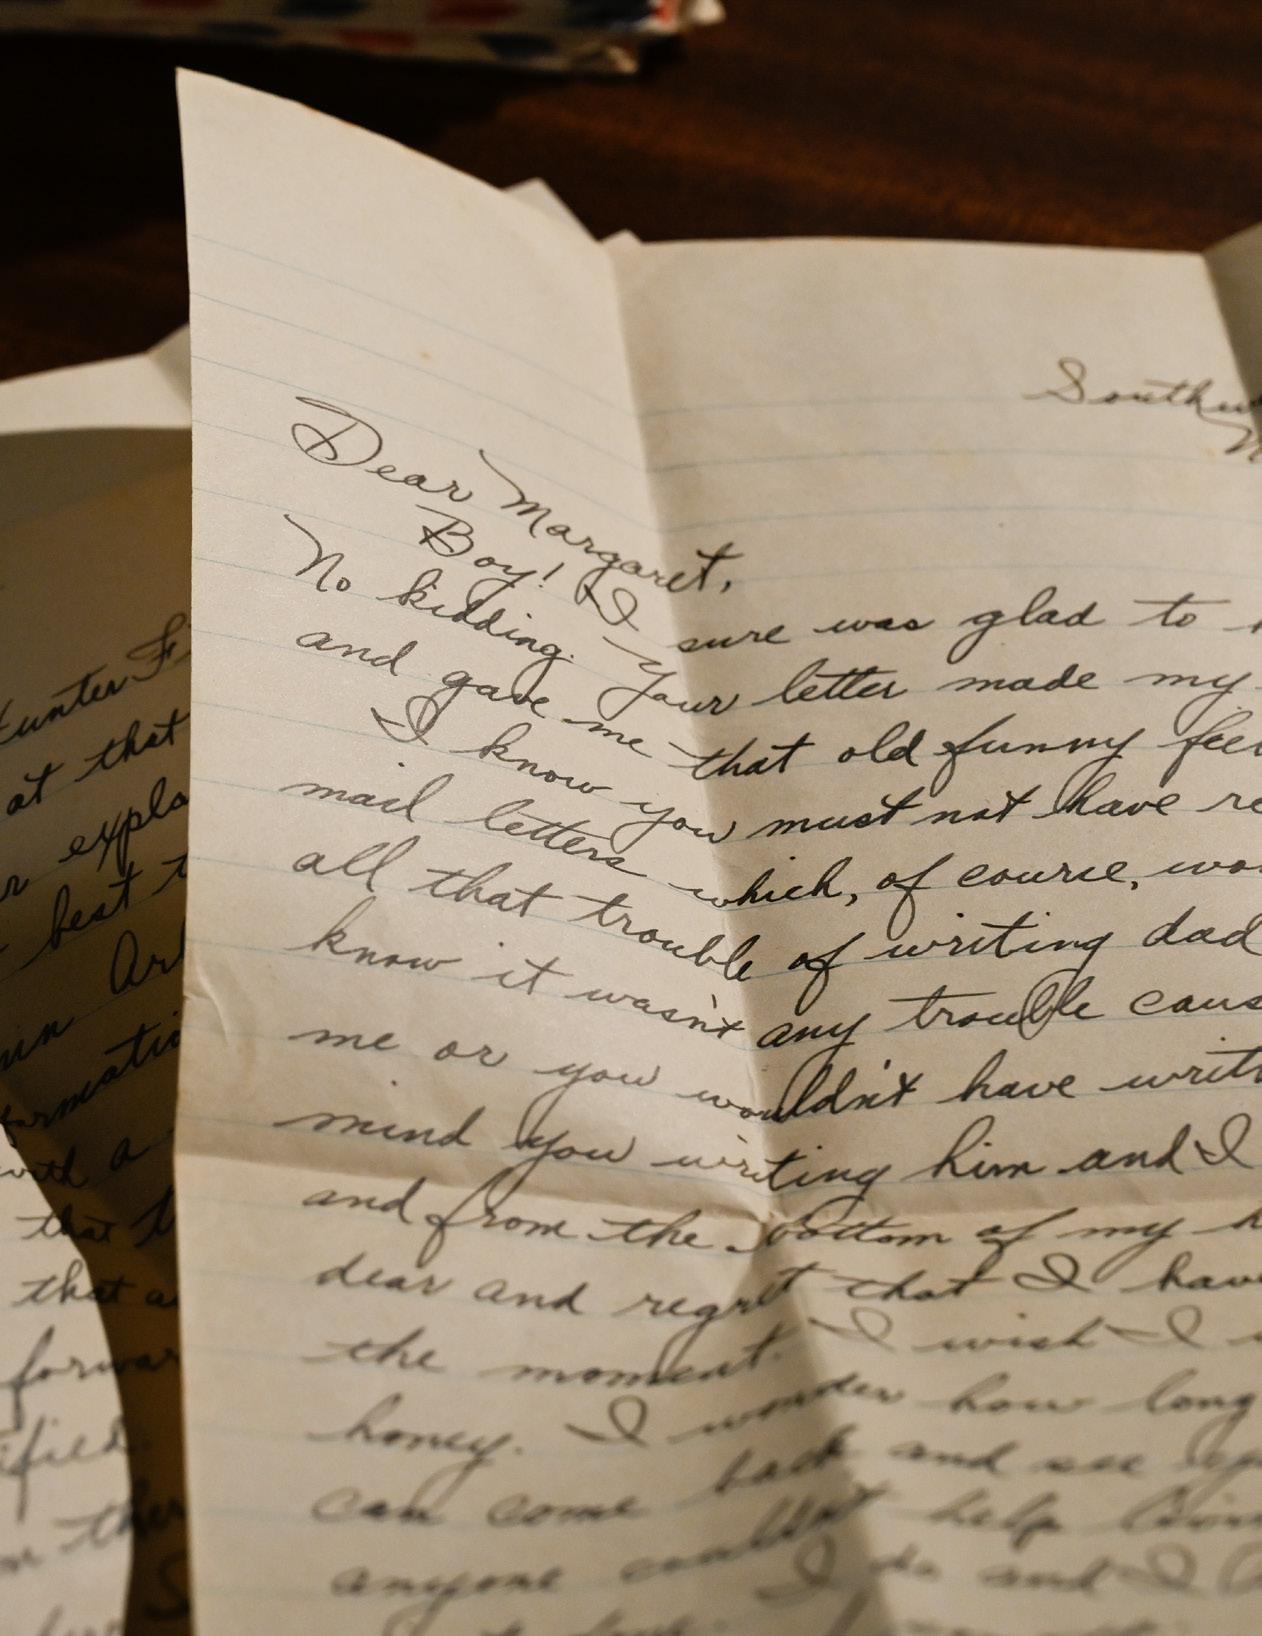 Southw
Dear Margaret,
Boy! I sure was glad to
No kidding. Your letter made my
and gave me that old funny fee
I know you must not have re
mail letters which, of course, wo
all that trouble of writing dad
know it wasn't any trouble caus
me or you wouldn't have writ
mind you writing him and I
and from the bottom of my h
dear and regret that I hav
the moment. I wish I
honey. I wonder how long
can come back and see
anyone couldn't help
I do and I
unter F
at that
r expla
best t
Ar
in
formati
with a
that t
that a
forwar
ified.
n ther